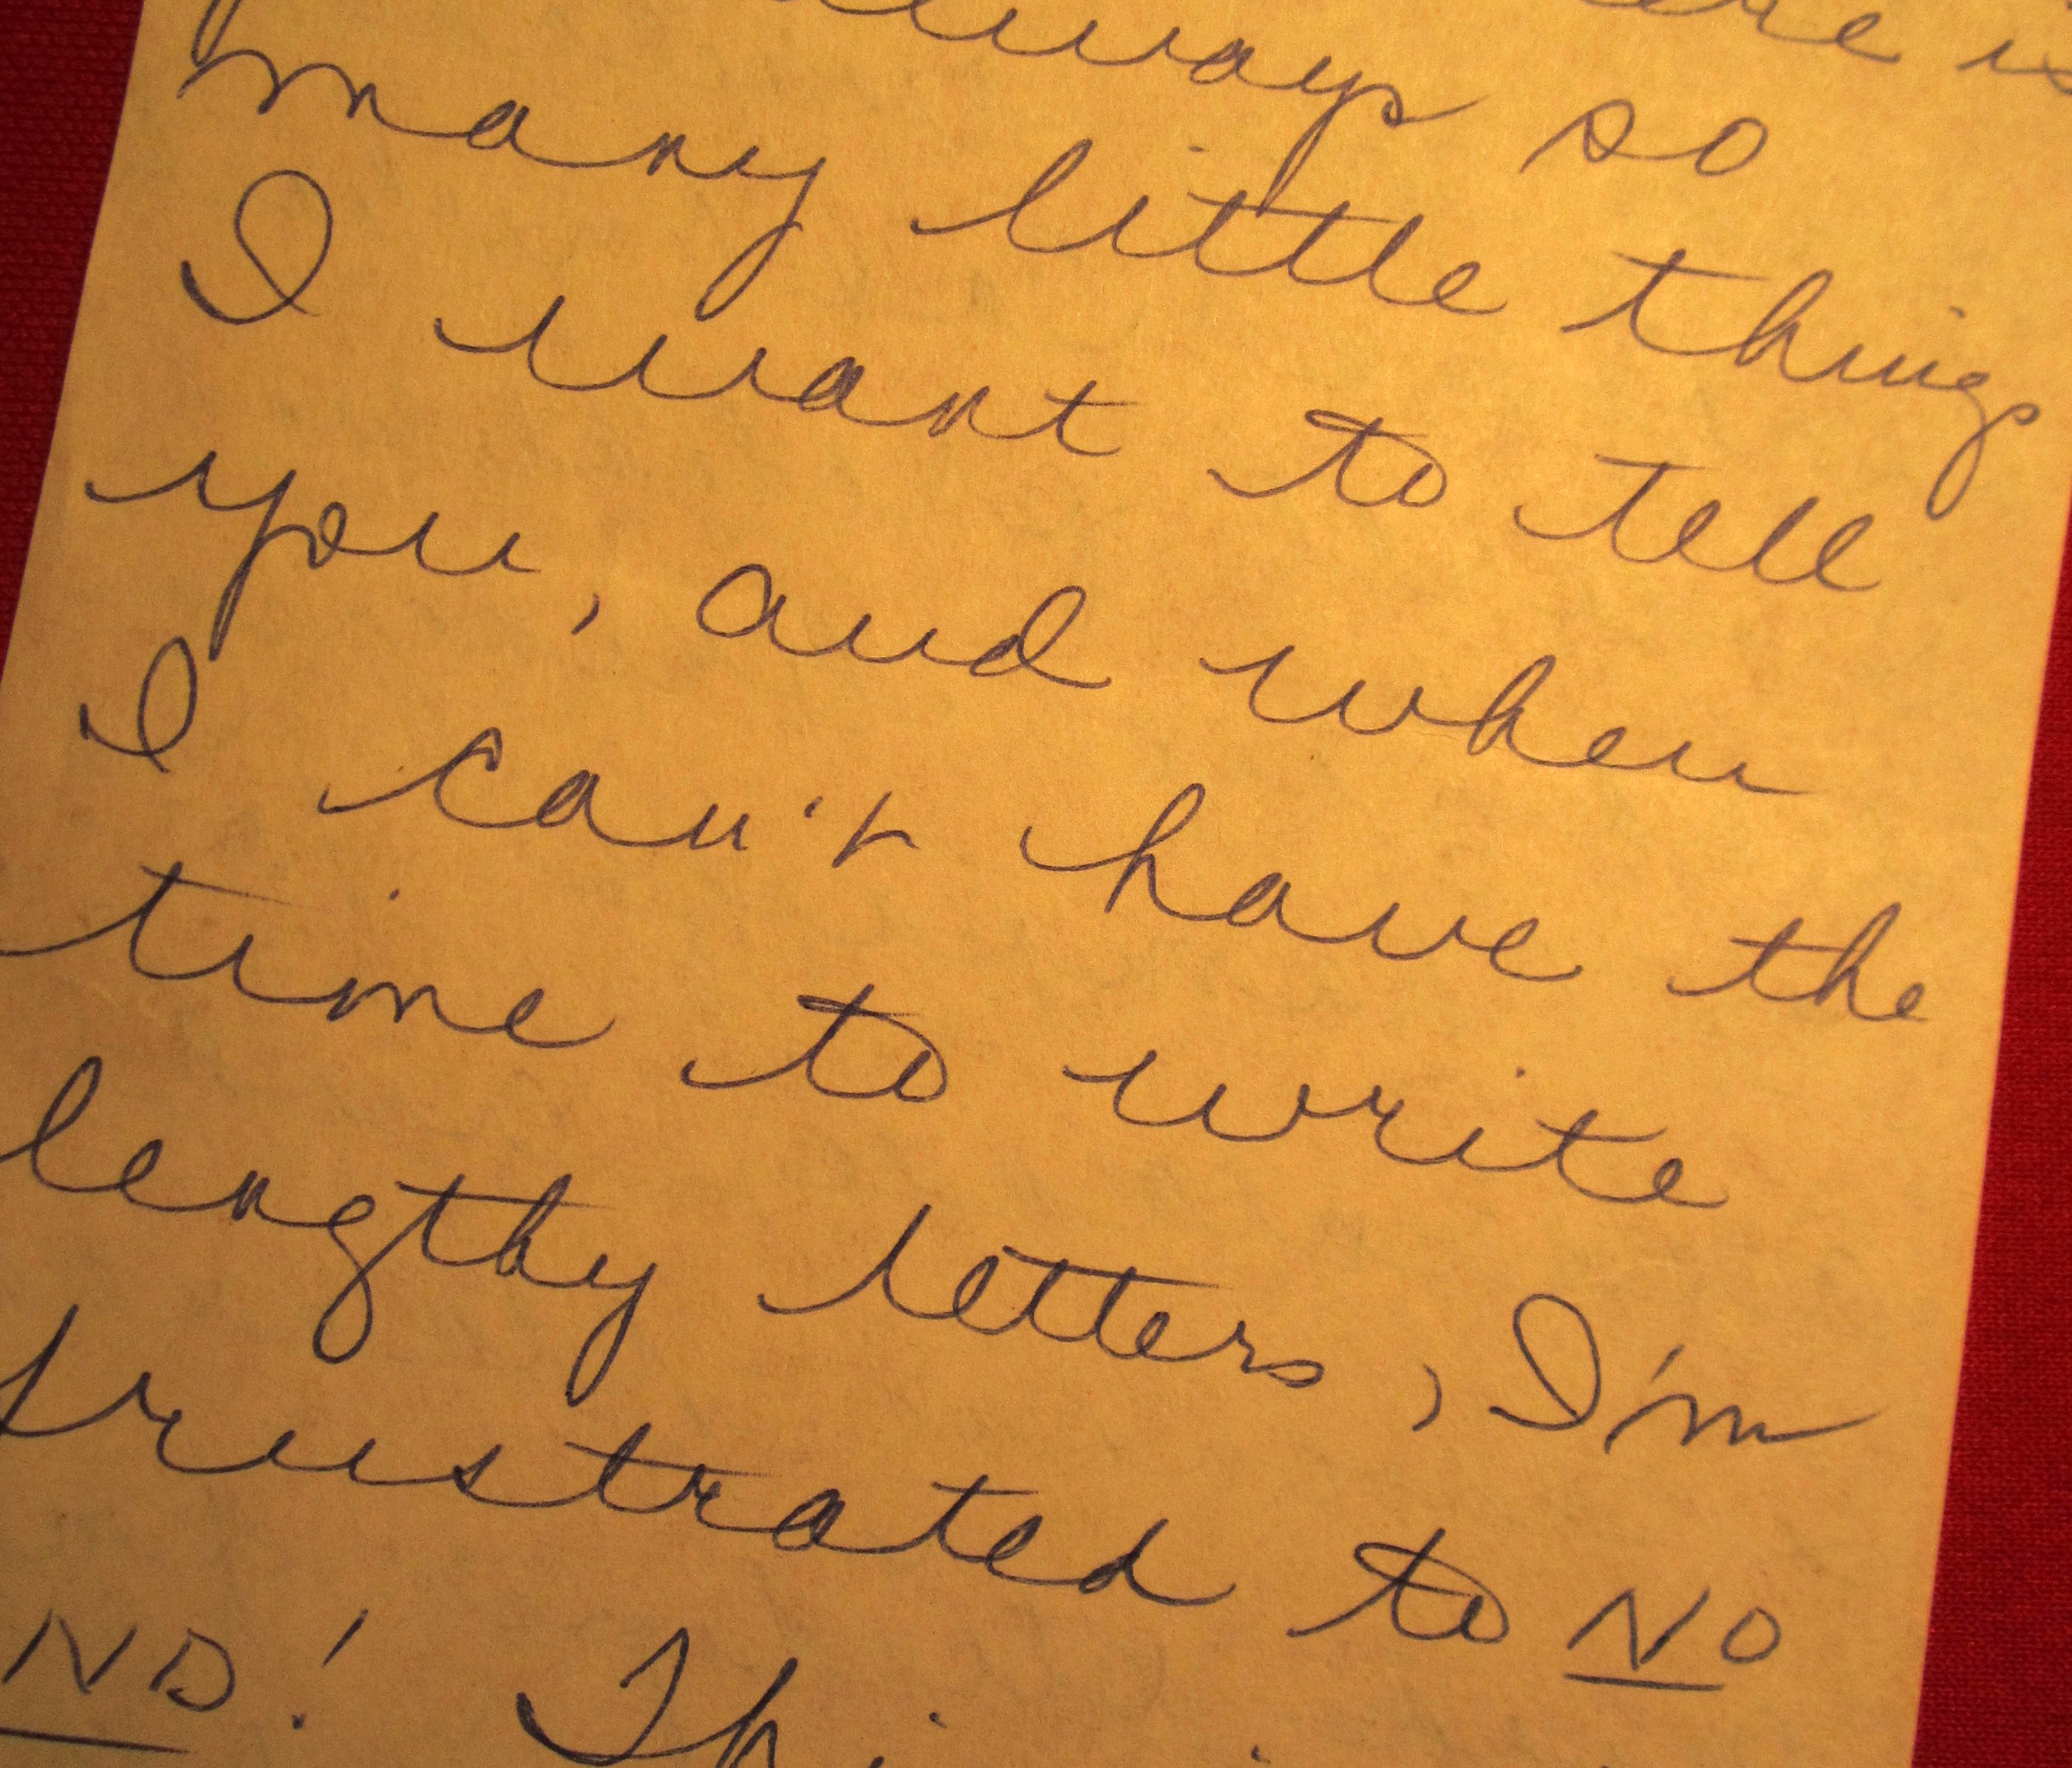 always so
many little things
I want to tell
you, and when
I can't have the
time to write
lengthy letters, I'm
frustrated to NO
ND!